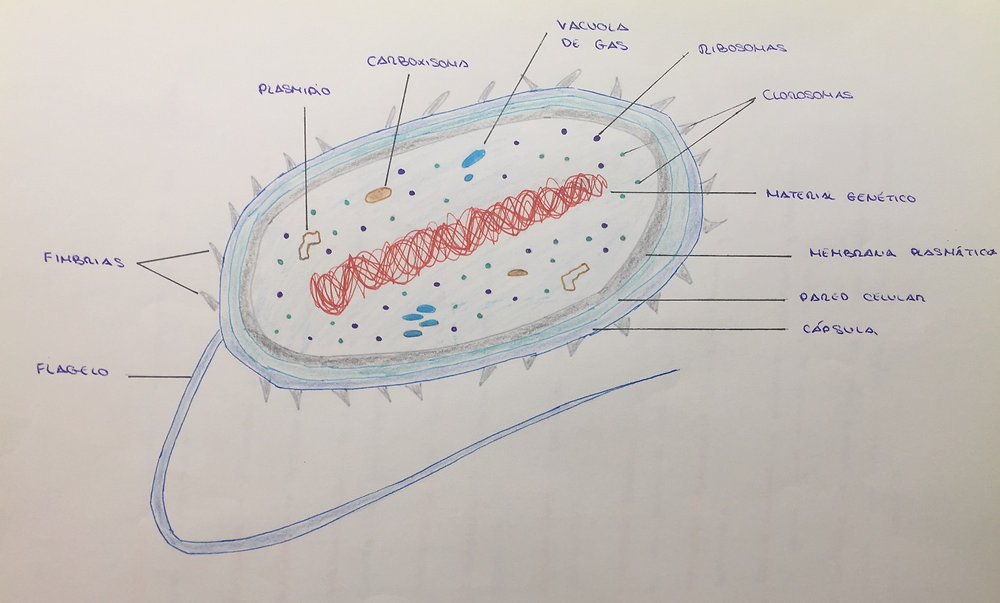 VACUOLA
DE GAS
RIBOSOMAS
CARBOXISOMA
PLASMIDIO
CLOROSOMAS
MATERIAL GENÉTICO
MEMBRANA PLASMÁTICA
FIMBRIAS
PARED CELULAR
CÁPSULA
FLAGELO